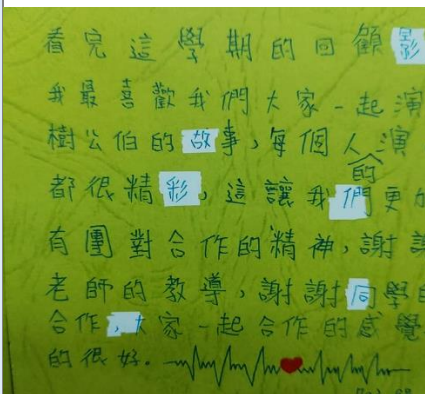 看完這學期的回顧影
我最喜歡我們大家一起演
樹公伯的故事，每個人演的
都很精彩，這讓我們更
有團對合作的精神，謝謝
老師的教導，謝謝同學
合作，大家一起合作的感覺
的很好．